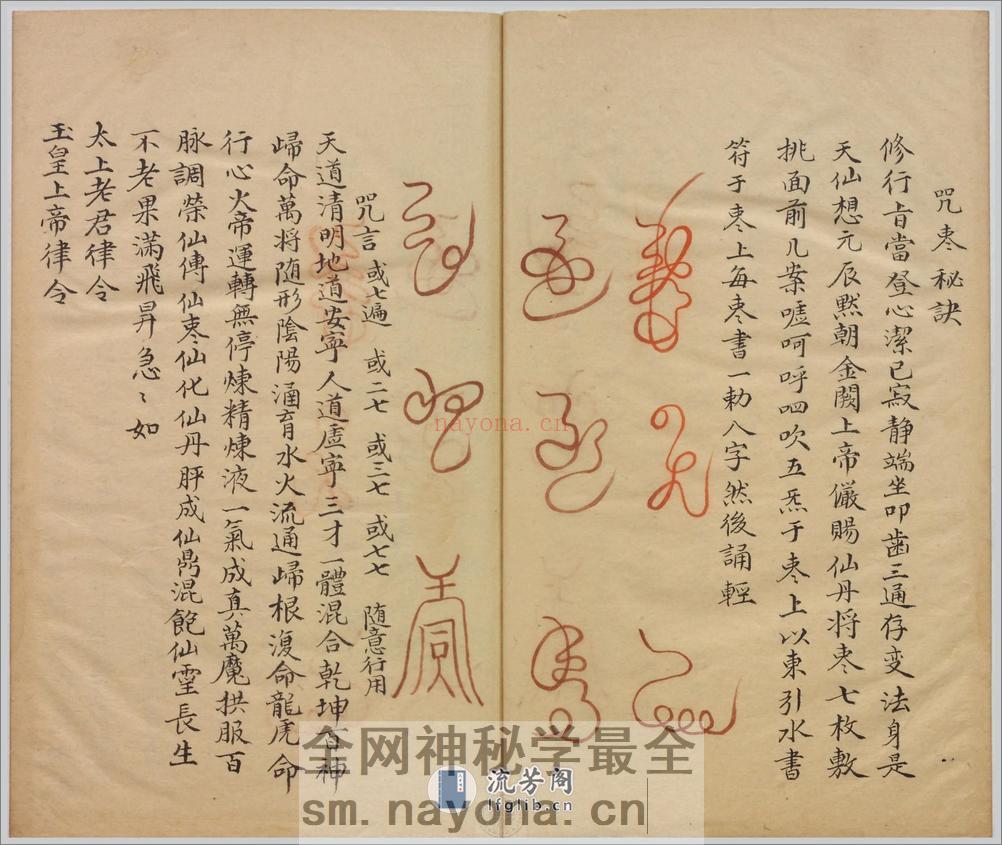 咒枣秘訣
修行旨當登心潔己寂静端坐叩歯三通存变法身是
天仙想元辰黙朝金闕上帝儼賜仙丹将枣七枚敷
挑面前几案嘘呵呼呬吹五炁于枣上以東引水書
符于枣上每枣書一勅八字然後誦輕
咒言 或七遍 或二七 或三七 或七七 随意行用
天道清明地道安寜人道虚寜三才一體混合乾坤百神
歸命萬将随形陰陽涵育水火流通歸根復命龍虎命
行心火帝運轉無停煉精煉液一氣成真萬魔拱服百
脉調榮仙傳仙枣仙化仙丹胖成仙鼎混飽仙靈長生
不老果滿飛昇急〻如
太上老君律令
玉皇上帝律令
nayona.cn
全网神秘学最全
流芳阁
lfglib.cn
sm.nayona.cn